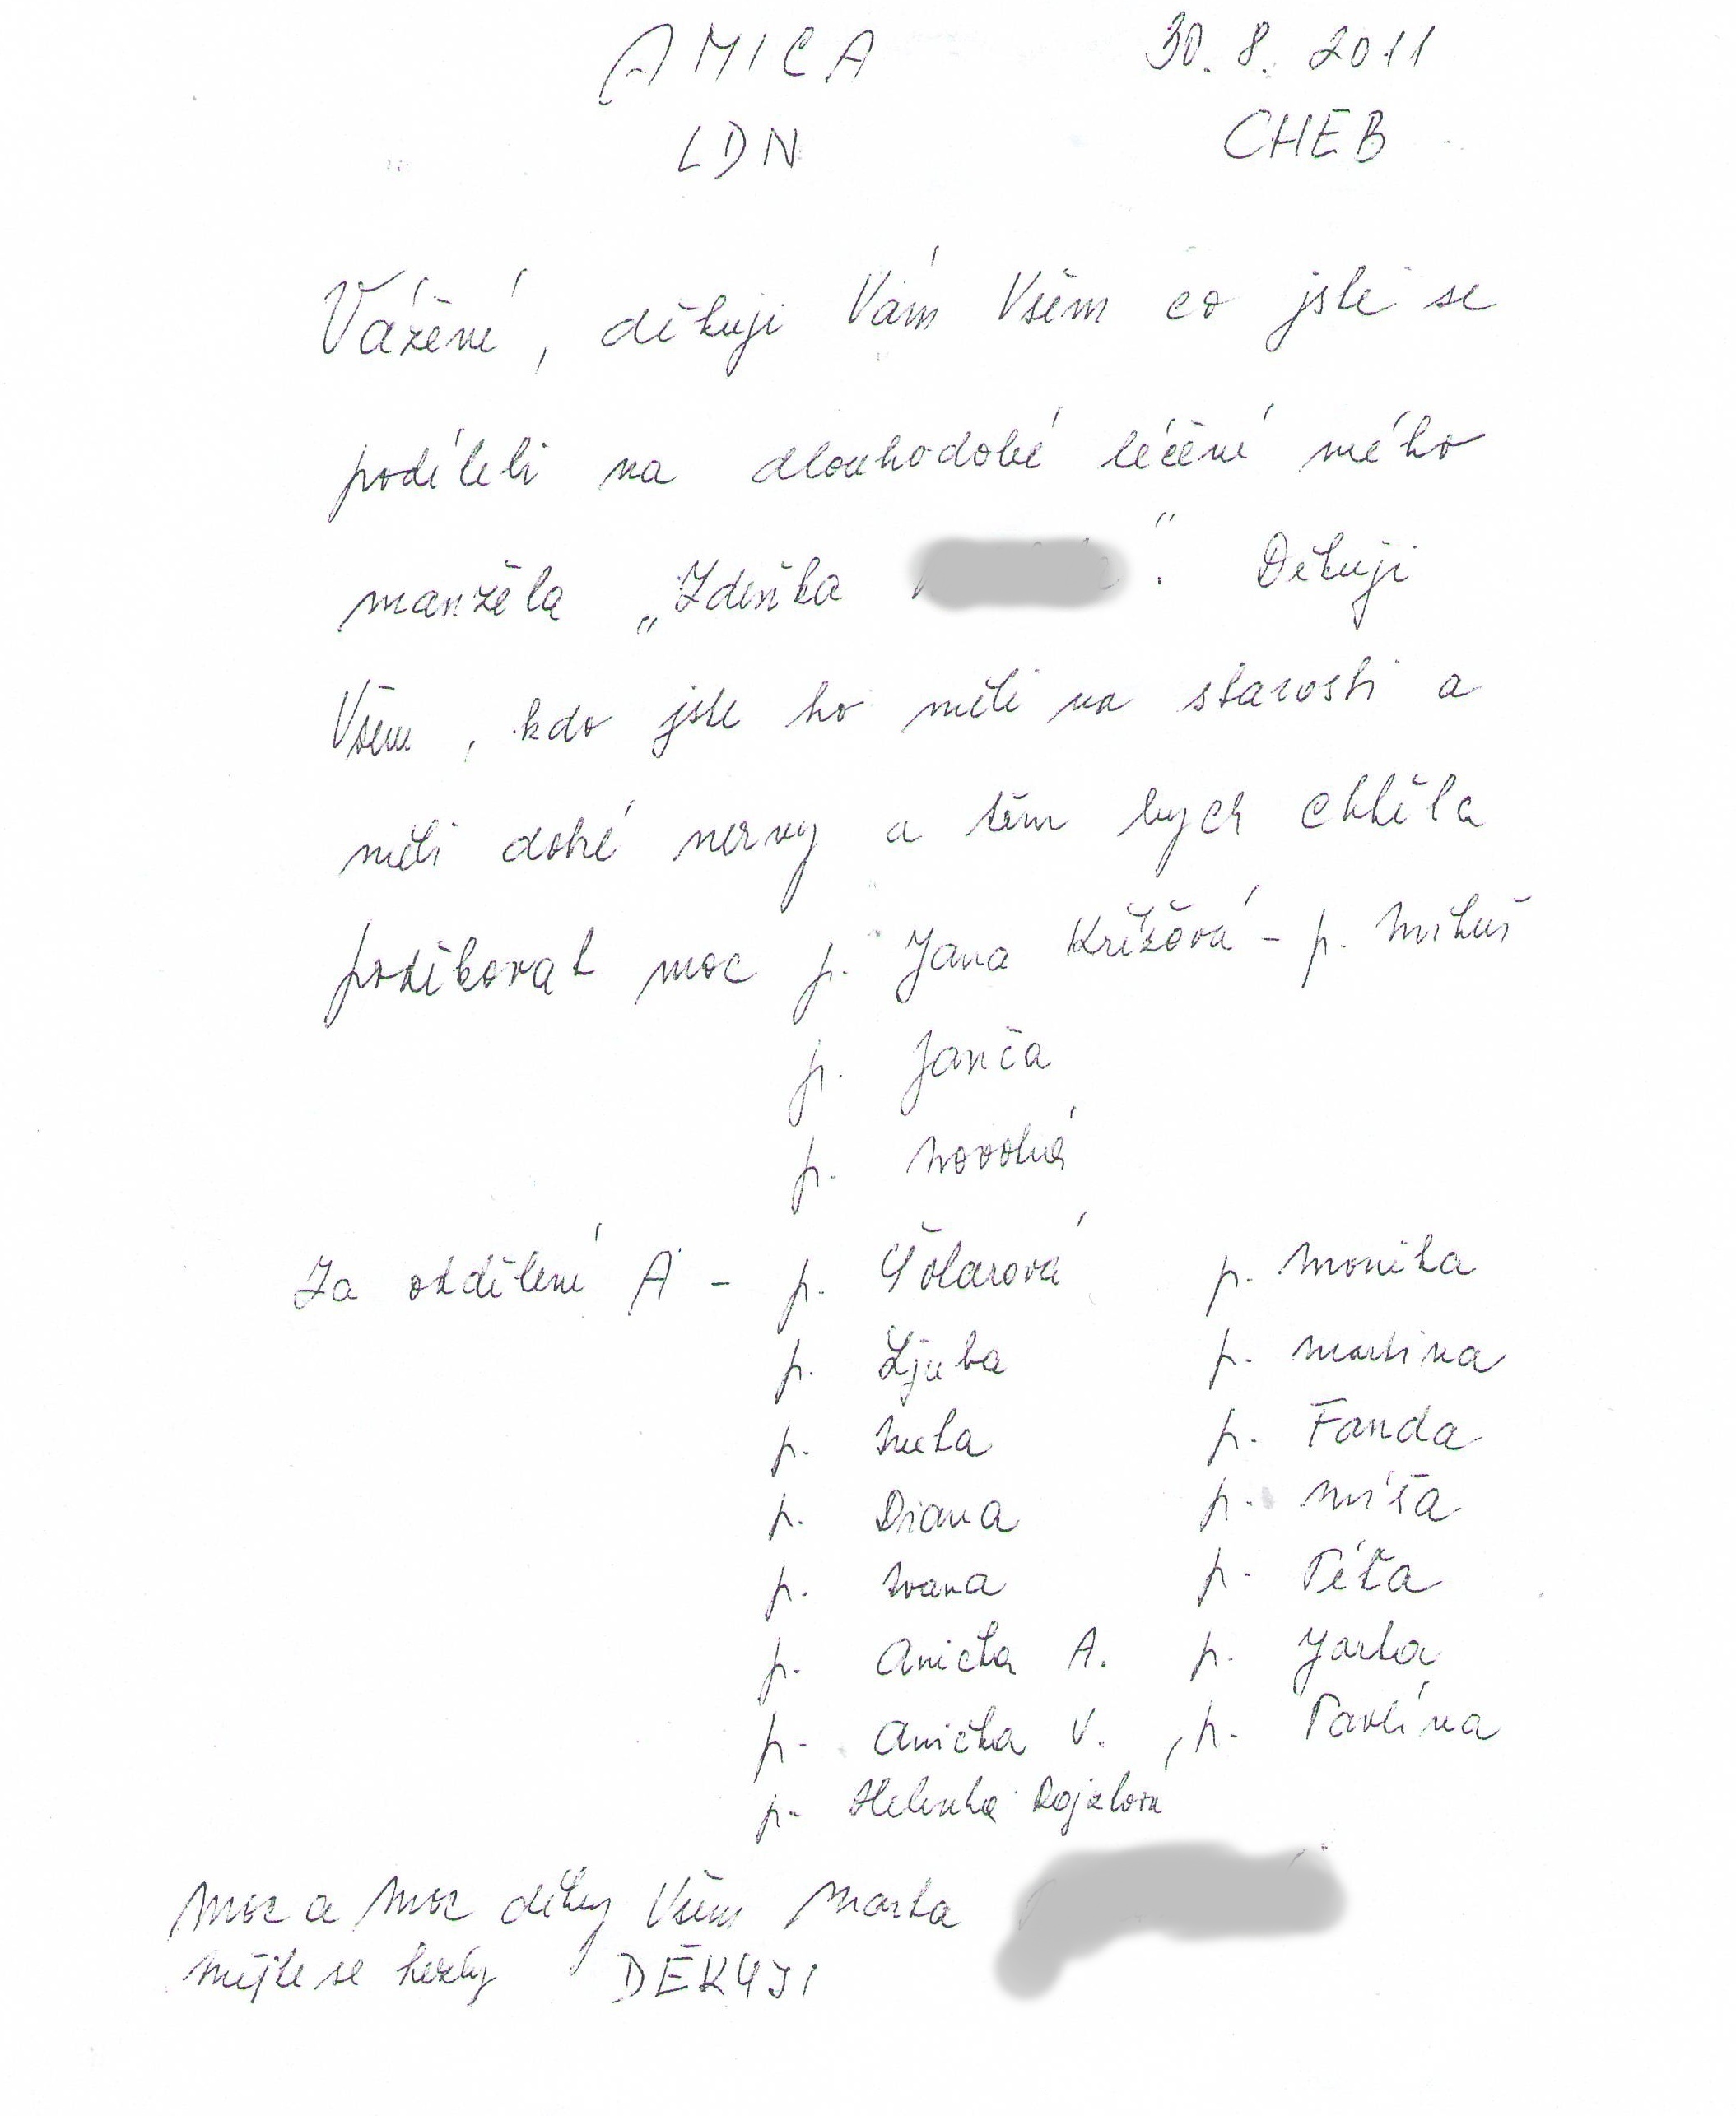 AMICA 30. 8. 2011
LDN CHEB
Vážení, děkuji Vám Všem co jste se
podíleli na dlouhodobé léčení mého
manžela „Zdeňka ". Děkuji
Všem, kdo jste ho měli na starosti a
měli dobré nervy a těm bych chtěla
poděkovat moc p. Jana Křížová - p. Mikuš
p. Janča
p. Novotná
Za oddělení A - p. Školarová p. Monika
p. Ljuba p. Martina
p. p. Fanda
p. Diana p. Míša
p. Ivana p. Péťa
p. Anička A. p. Jarka
p. Anička V. , p. Pavlína
p. Helenka
Moc a Moc díky Všem Marta
Mějte se hezky DĚKUJI